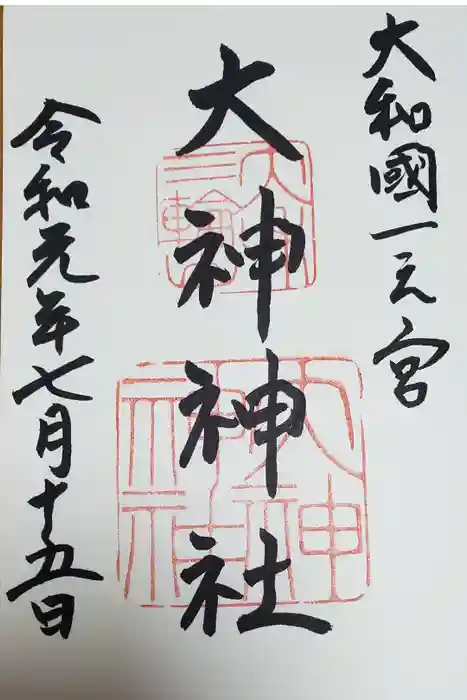 大和國一之宮
大神神社
令和元年七月十五日
三輪
大神
神社